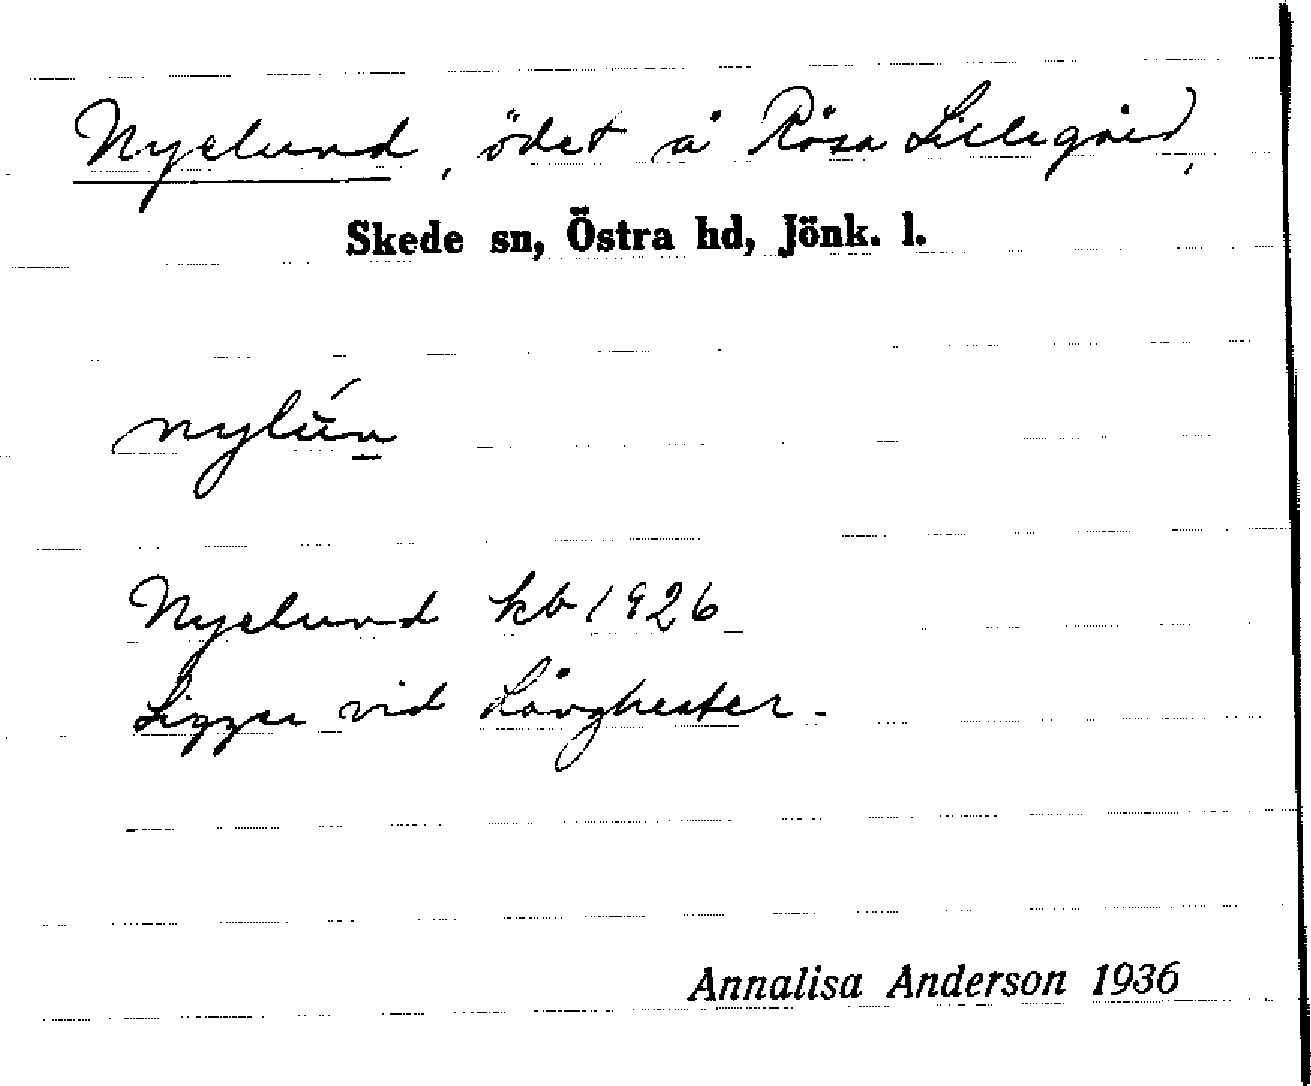 Nyelund, ödet å Rösa Lillegård,
Skede sn, Östra hd, Jönk. l.
nylún
Nyelund kb 1926
Ligger vid Lövghester.
Annalisa Anderson 1936